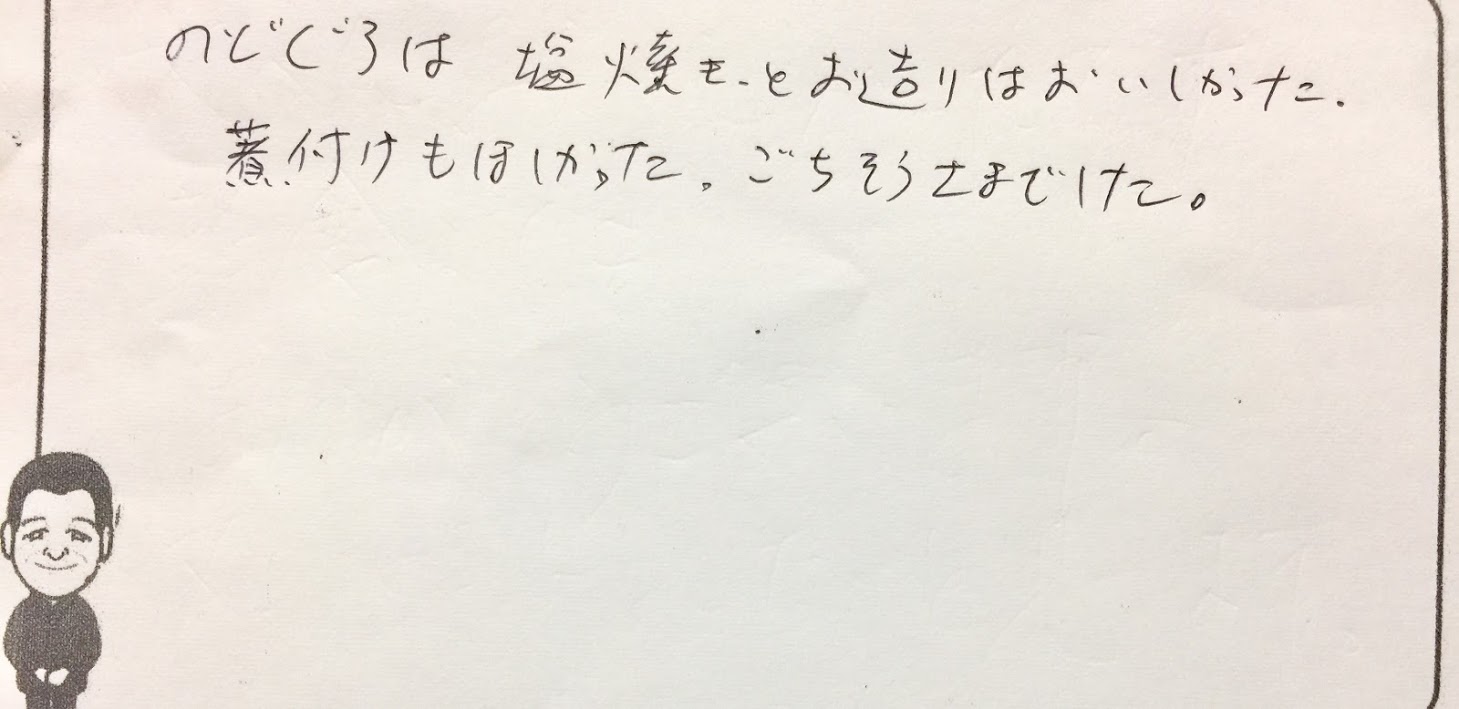 のどぐろは 塩焼きとお造りはおいしかった.
煮付けもほしかった。ごちそうさまでした。